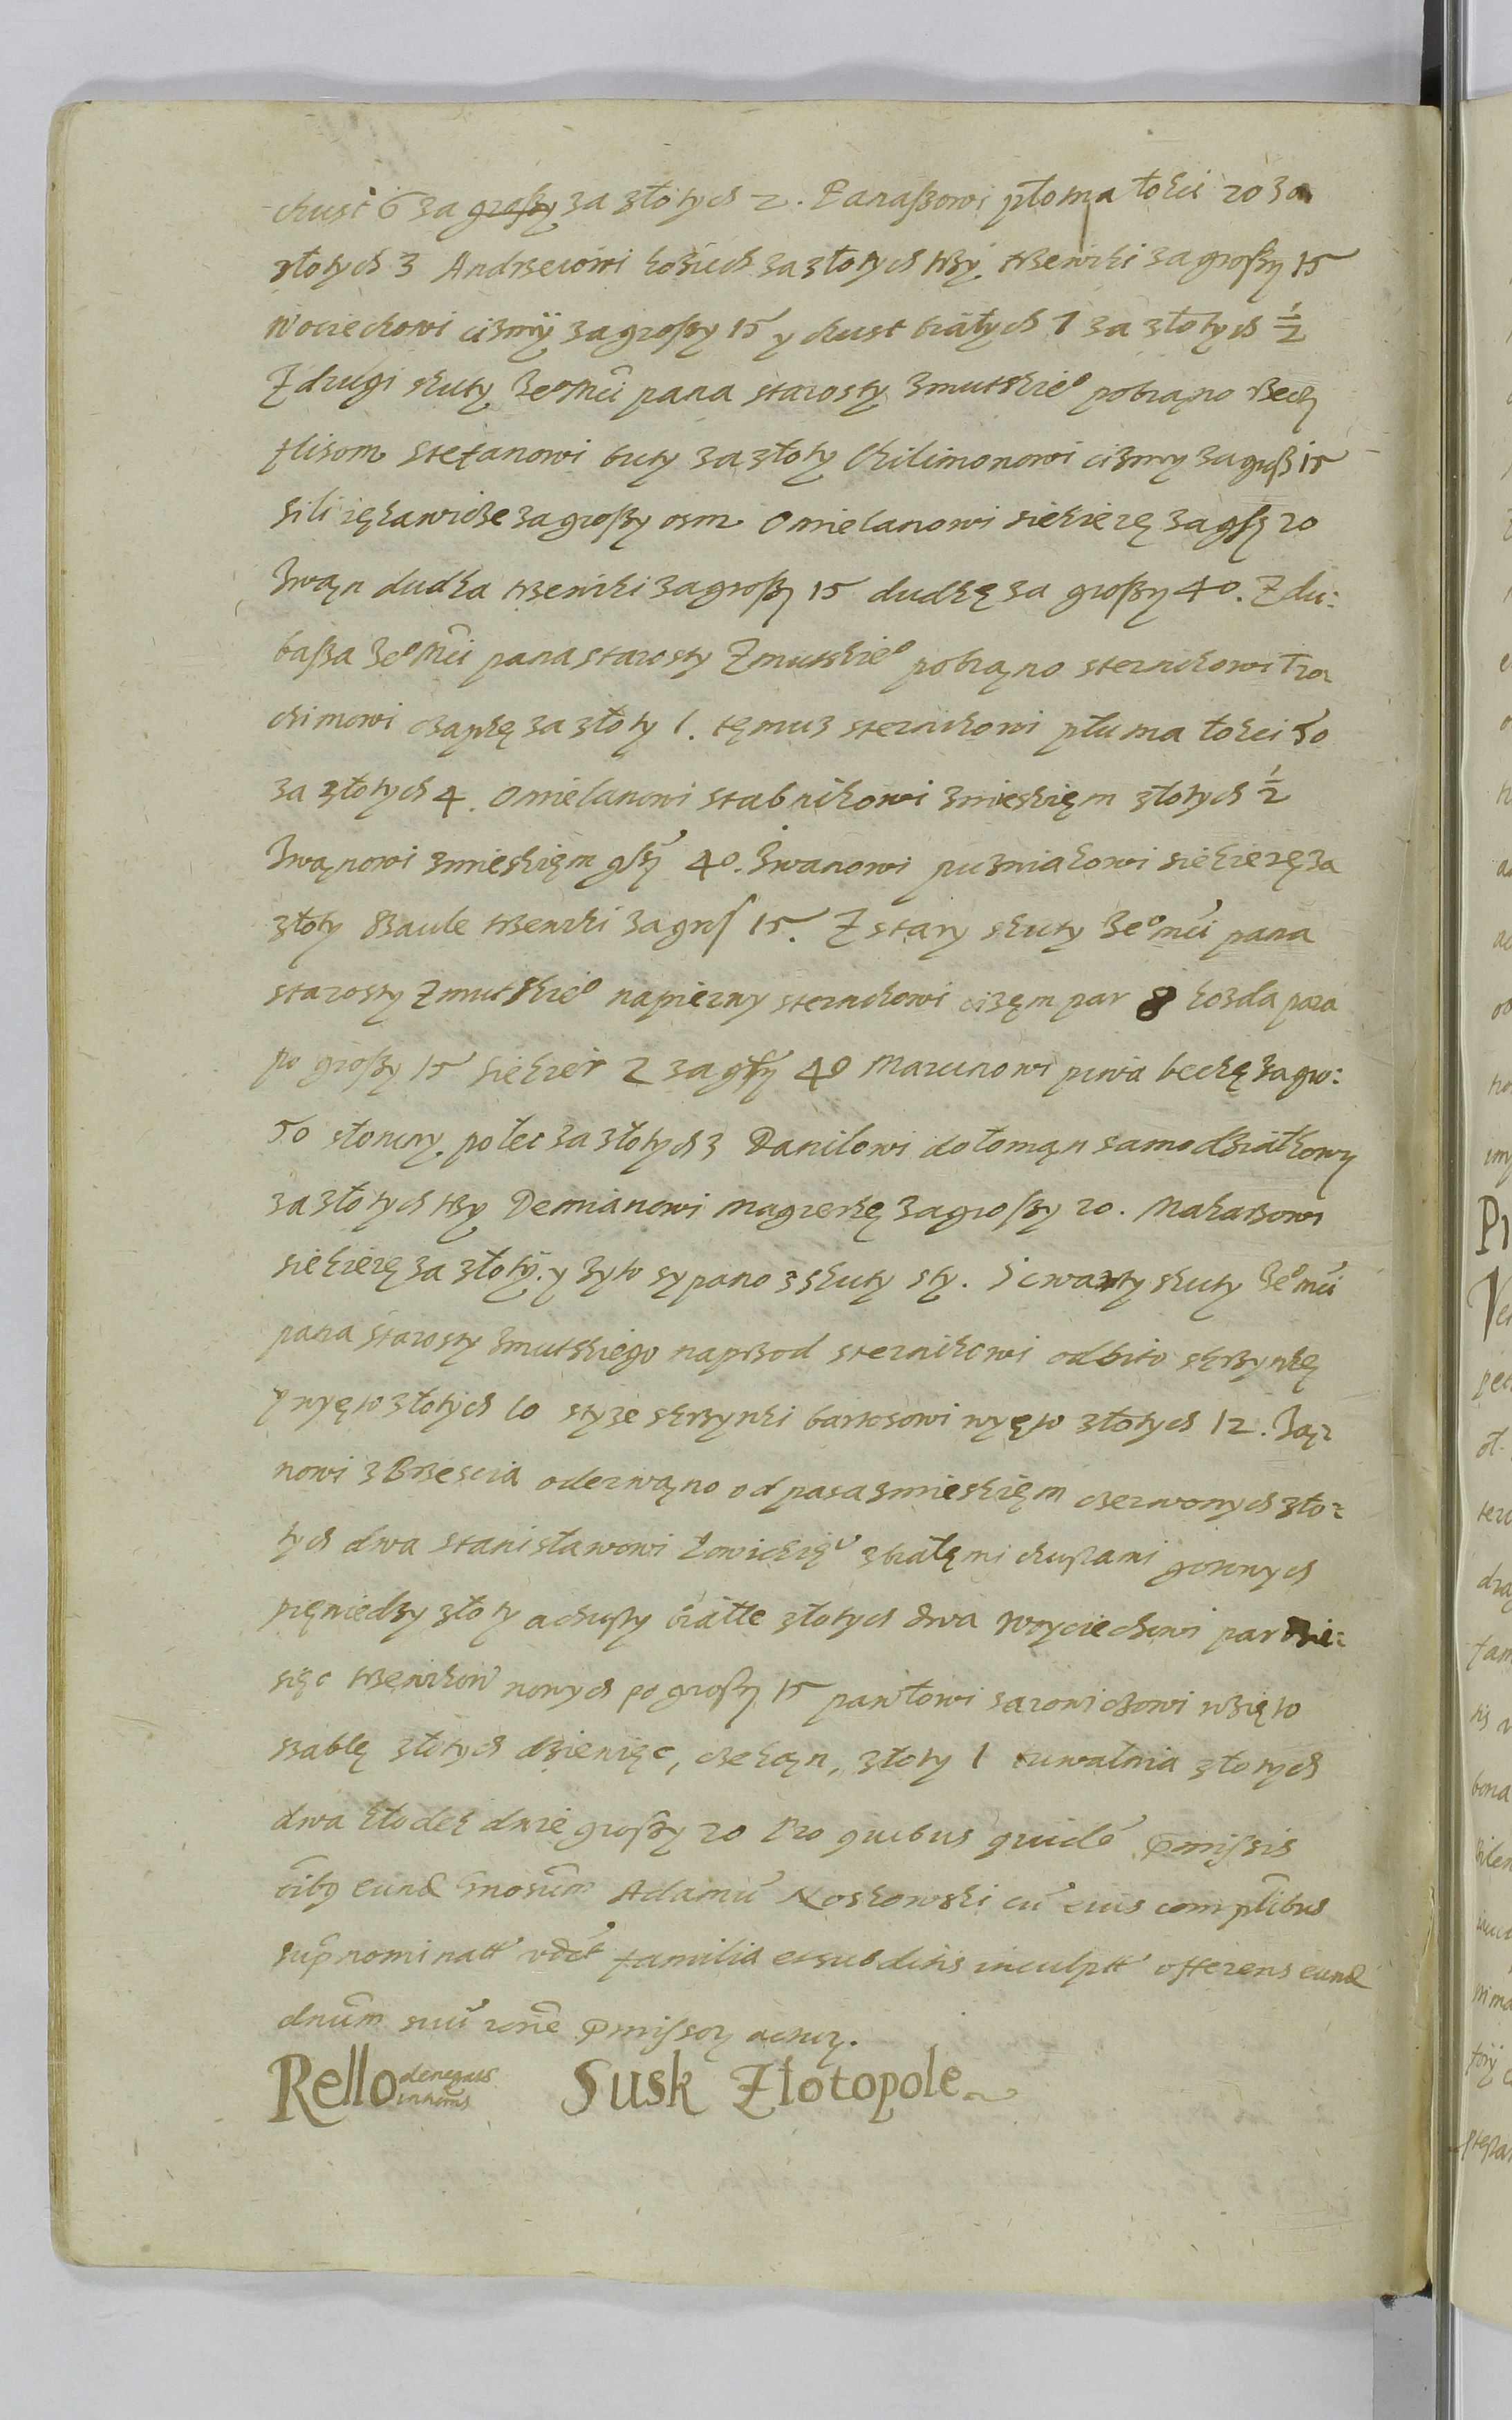 chust 6 za groszy za złotych 2. Panaszowi płotna łokci 20 za
złotych 3 Andrzeiowi kożuch za złotych trzy. trzewiki za groszy 15
Wociechowi ciżmÿ za groszy 15 y chust białych 1 za złotych ½
Z drugi skuty Jeo Mci pana starosty Zmutskieo pobrąno rzeczy
flisom Stefanowi buty za złoty Chilimonowi ciżmy za grosz 15
Sili rękawicze za groszy osm Omielanowi siekierę za gszy 20
Iwąn dudka trzewiki za groszy 15 dudkę za groszy 40. Z du:
basza Jeo Mci pana starosty Zmutskieo pobrąno sternikowi Tro:
chimowi czapkę za złoty 1. tęmuz sternikowi płutna łokci 50
za złotych 4. Omielanowi stabnikowi zmieskięm złotych ½
Iwąnowi zmieskięm gszy 40. Iwanowi puzniakowi siekierę za
złoty Szaule trzewiki za gros 15. Z stary skuty Jeo mci pana
starosty Zmutskieo napierwy sternikowi ciżęm par 8 kożda para
po groszy 15 siekier 2 za gszy 40 Marcinowi piwa beckę za gro:
50 słoniny połec za złotych 3 Daniłowi dołomąn samodziałkowy
za złotych trzy Demianowi magierkę za groszy 20. Makarzowi
siekierę za złotÿ. y żyto sypano z skuty sty. S cwarty skuty Jeo mci
pana starosty Zmutskiego naprzod sternikowi odbito skrzynkę
y wyęto złotych 10 styze skrzynki bartosowi wyęto złotych 12. Ią:
nowi z Brzescia oderwąno od pasa zmieskięm czerwonych zło:
tych dwa Stanisławowi Łowickięu z białęmi chustami gotowych
pięniedzy złoty a chusty białłe złotych dwa Woyciechowi par dzie:
sięc trzewikow nowych po groszy 15 pawłowi sarowiczowi wzięto
szablę złotych dziewięc, czekąn, złoty 1 tuwalnia złotych
dwa kłodek dwie groszy 20 Pro quibus quidē pmissis
oibg eund Gnosum Adamū Noskowski cū eius complibus
supnominatt vdct familia et subditis inculptt offerens eund
dnum suū rone pmissor actur.
Rello denegaus innems Susk Złotopole